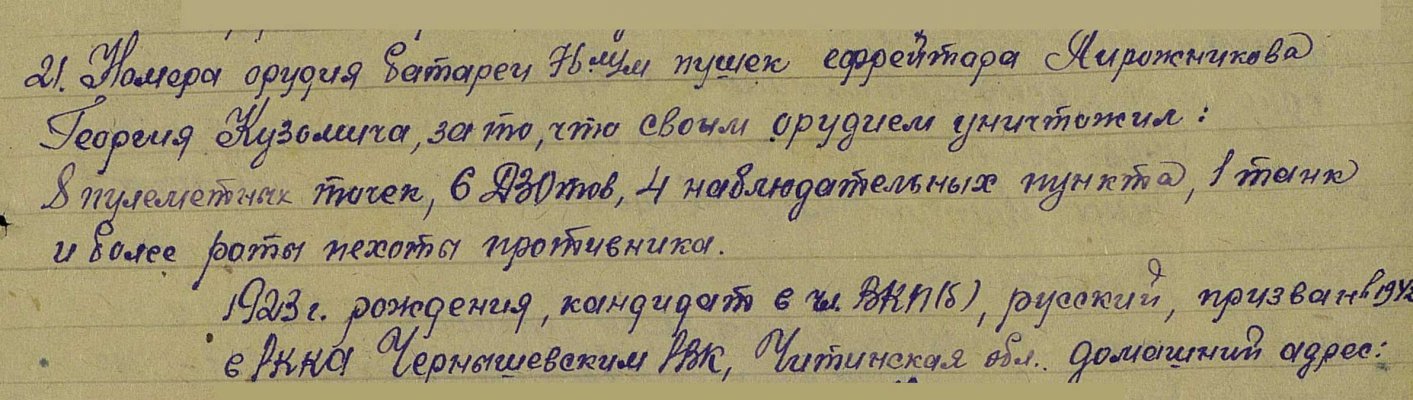 21. Номера орудия батареи 76 м/м пушек ефрейтора Пирожникова
Георгия Кузьмича, за то, что своим орудием уничтожил:
8 пулеметных точек, 6 ДЗОтов, 4 наблюдательных пункта, 1 танк
и более роты пехоты противника.
1923 г. рождения, кандидат в чл. ВКП(б), русский, призван в 194
в РККА Чернышевским РВК, Читинская обл.. домашний адрес: